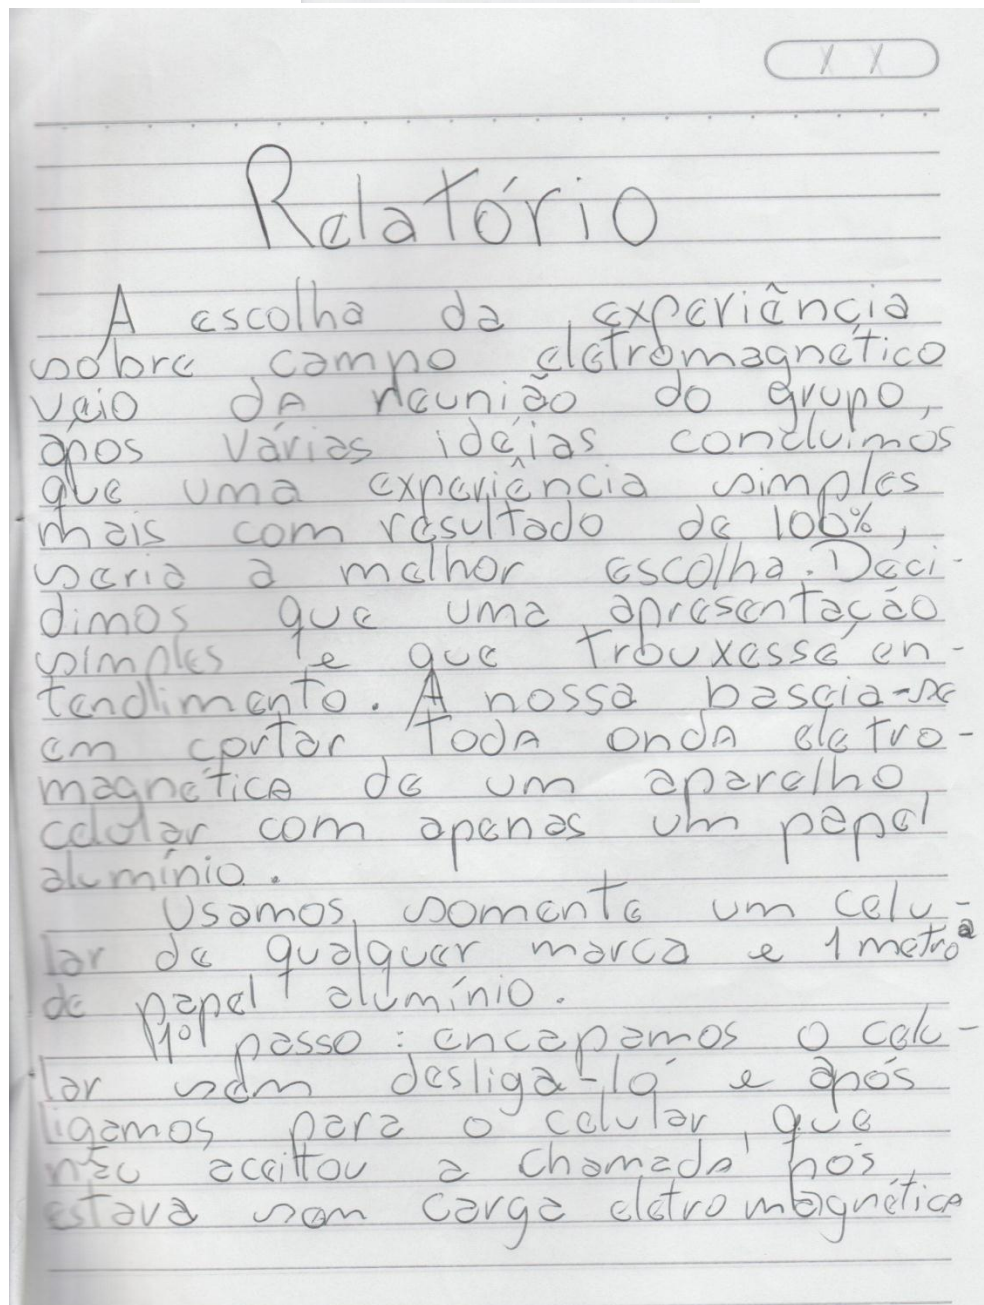 X X
Relatório
A escolha da experiência
sobre campo eletromagnético
veio da reunião do grupo,
após várias idéias concluímos
que uma experiência simples
mais com resultado de 100%,
seria a melhor escolha. Deci-
dimos que uma apresentação
simples e que trouxesse en-
tendimento. A nossa baseia-se
em cortar toda onda eletro-
magnética de um aparelho
celular com apenas um papel
alumínio.
Usamos somente um celu-
lar de qualquer marca e 1 metro
de papel alumínio.
1º passo: encapamos o celu-
lar sem desliga-ló e após
ligamos para o celular, que
não aceittou a chamada
estava sem carga eletromagnética